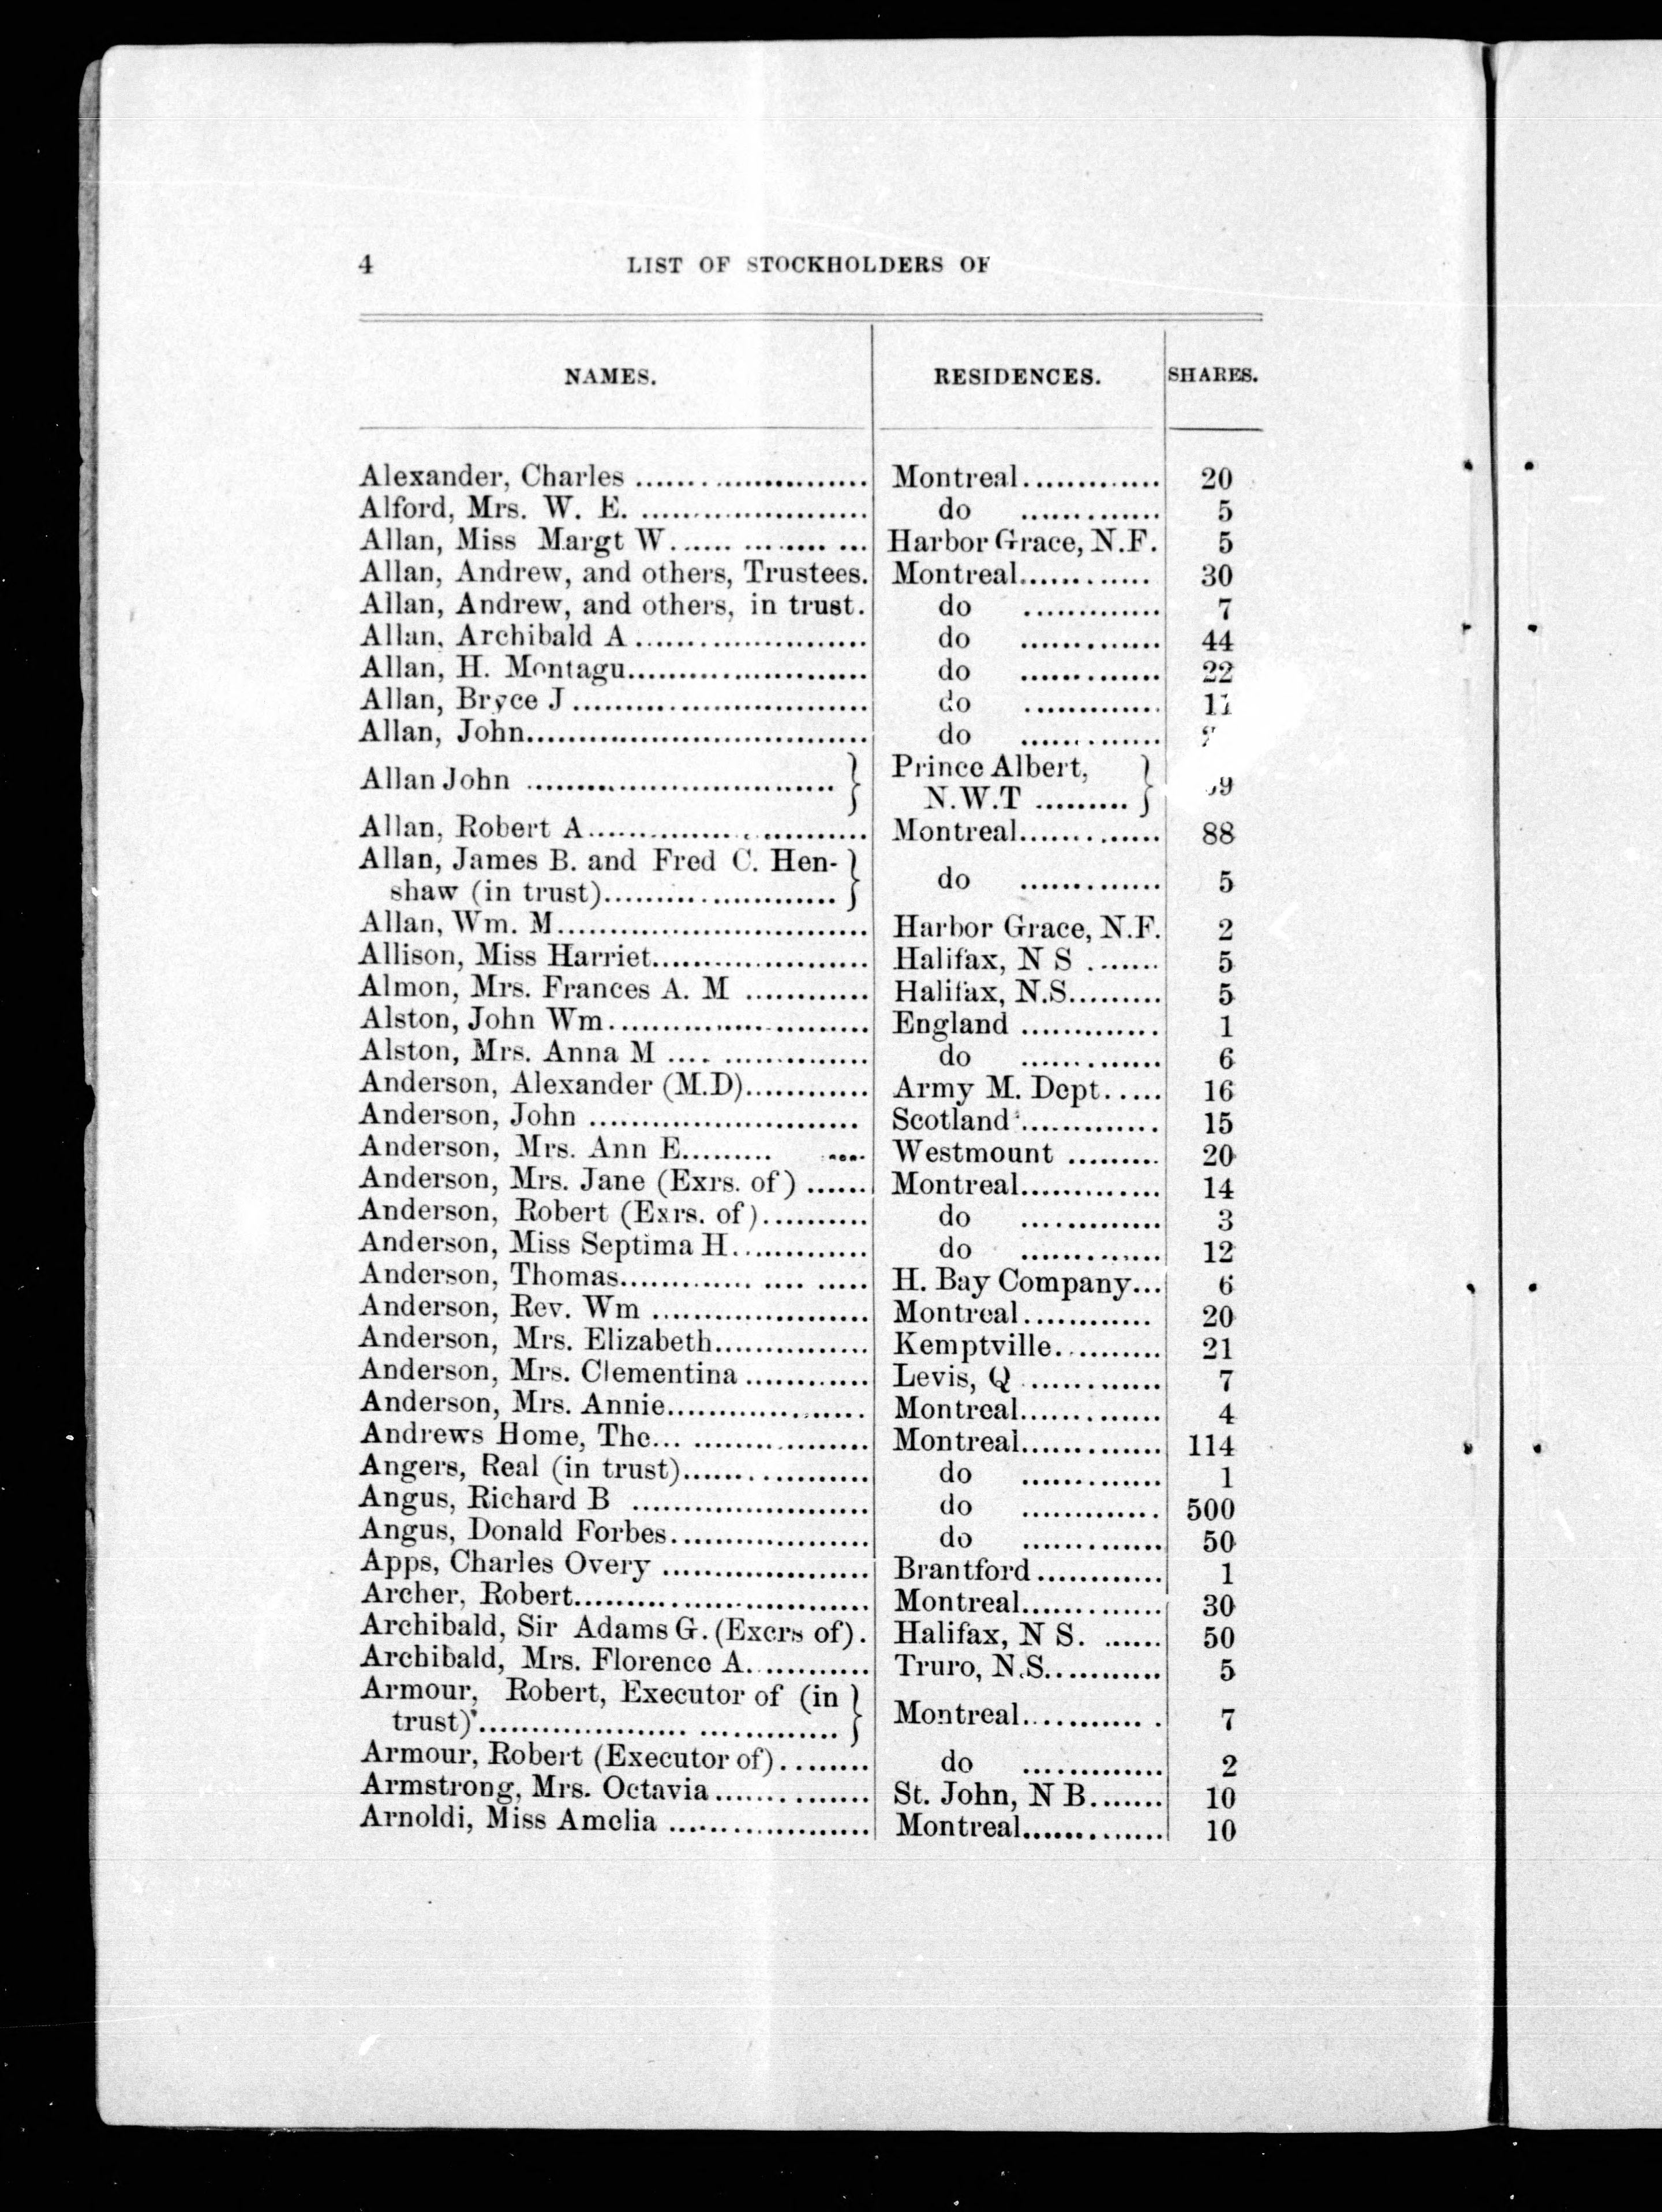 4 LIST OF STOCKHOLDERS OF
NAMES. RESIDENCES. SHARES.
Alexander, Charles ........................ Montreal............. 20
Alford, Mrs. W. E. ........................ do ............. 5
Allan, Miss Margt W...... ........ ... Harbor Grace, N.F. 5
Allan, Andrew, and others, Trustees. Montreal............ 30
Allan, Andrew, and others, in trust. do ............. 7
Allan, Archibald A........................ do ............. 44
Allan, H. Montagu........................ do ............. 22
Allan, Bryce J ............................. do .............
Allan, John.................................. do .............
Allan John .............................. } Prince Albert, }
N.W.T .........
Allan, Robert A........................... Montreal............. 88
Allan, James B. and Fred C. Hen- }
shaw (in trust)....................... do ............. 5
Allan, Wm. M.............................. Harbor Grace, N.F. 2
Allison, Miss Harriet..................... Halifax, N S ....... 5
Almon, Mrs. Frances A. M ............ Halifax, N.S......... 5
Alston, John Wm.......................... England ............. 1
Alston, Mrs. Anna M .... .............. do ............. 6
Anderson, Alexander (M.D)............ Army M. Dept..... 16
Anderson, John .......................... Scotland ............. 15
Anderson, Mrs. Ann E......... .... Westmount ......... 20
Anderson, Mrs. Jane (Exrs. of) ...... Montreal............. 14
Anderson, Robert (Exrs. of).......... do ............. 3
Anderson, Miss Septima H............. do ............. 12
Anderson, Thomas............. .... ..... H. Bay Company... 6
Anderson, Rev. Wm ..................... Montreal............ 20
Anderson, Mrs. Elizabeth............... Kemptville.......... 21
Anderson, Mrs. Clementina ............ Levis, Q ............. 7
Anderson, Mrs. Annie................... Montreal............. 4
Andrews Home, The... ................. Montreal............. 114
Angers, Real (in trust).................. do ............. 1
Angus, Richard B ....................... do ............. 500
Angus, Donald Forbes................... do ............. 50
Apps, Charles Overy .................... Brantford............ 1
Archer, Robert............................. Montreal............. 30
Archibald, Sir Adams G. (Excrs of). Halifax, N S. ...... 50
Archibald, Mrs. Florence A............ Truro, N.S........... 5
Armour, Robert, Executor of (in }
trust).................... .............. Montreal........... . 7
Armour, Robert (Executor of)......... do ............. 2
Armstrong, Mrs. Octavia............... St. John, N B....... 10
Arnoldi, Miss Amelia .................... Montreal............. 10